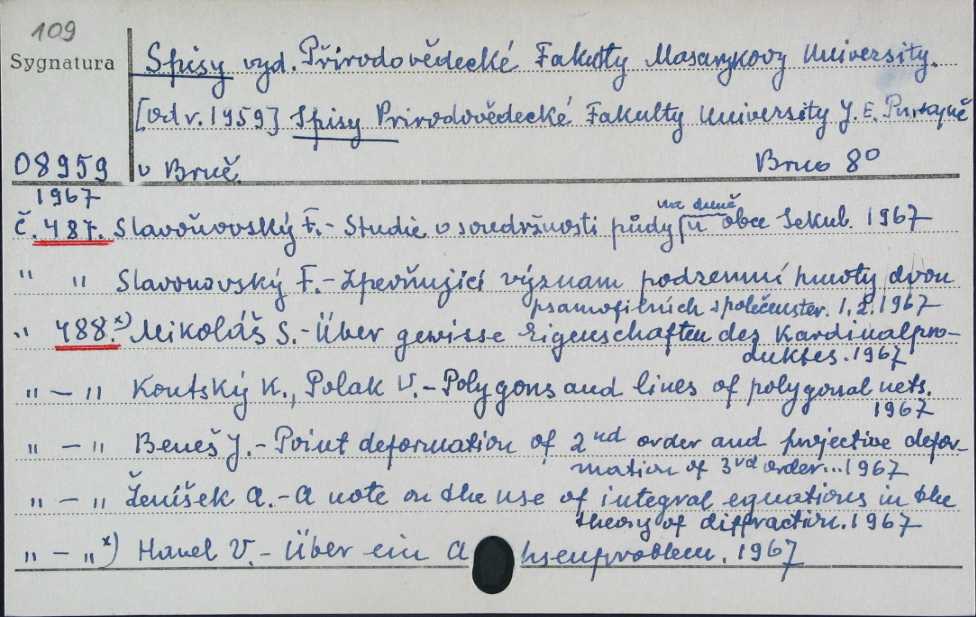 109
Sygnatura
Spisy vyd. Přírodovědecké Fakulty Masarykovy University.
[od r. 1959] Spisy Prirodovědecké Fakulty University J. E. Purkyně
08959 v Brně. Brno 8°
1967
č. 487. Slavoňovský F. - Studie o soudržnosti půdy na duně u obce Sekul. 1967
" " Slavonovský F. - Zpevňující význam podzemní hmoty dvou
psamofilních společenstev. 1, 2. 1967
" 488. x) Mikoláš S. - Über gewisse Eigenschaften des Kardinalpro-
duktes. 1967
" - " Koutský K., Polak V. - Polygons and lines of polygonal nets.
1967
" - " Beneš J. - Point deformation of 2nd order and projective defor-
mation of 3rd order... 1967
" - " Ženíšek A. - A note on the use of integral equations in the
theory of diffraction. 1967
" - " x) Havel V. - Über ein A hsenproblem. 1967